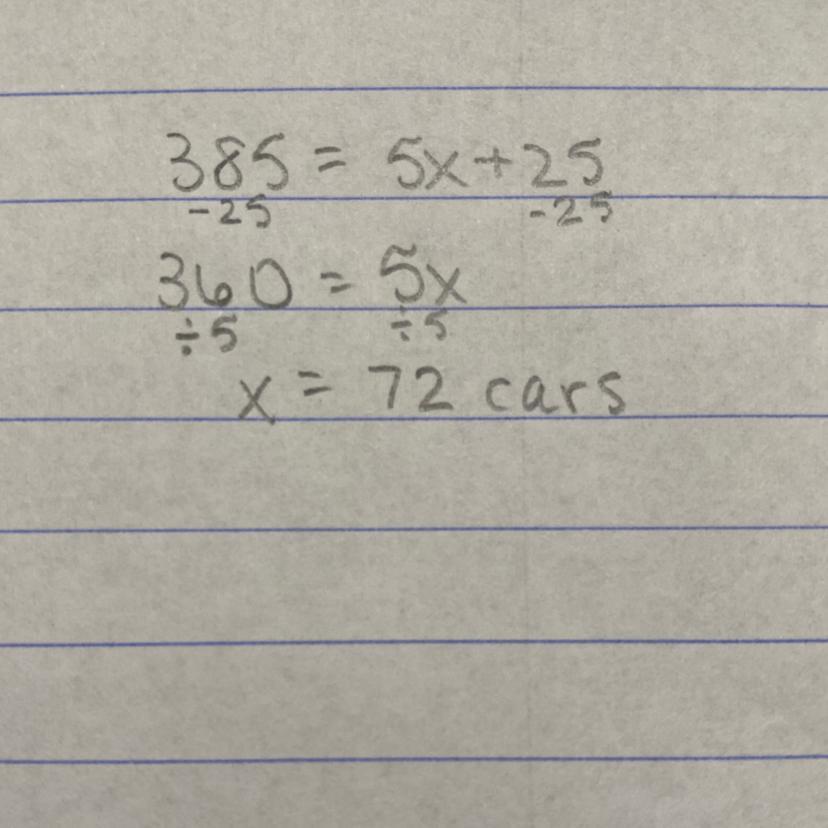 385 = 5x+25
-25 -25
360 = 5x
÷5 ÷5
x = 72 cars